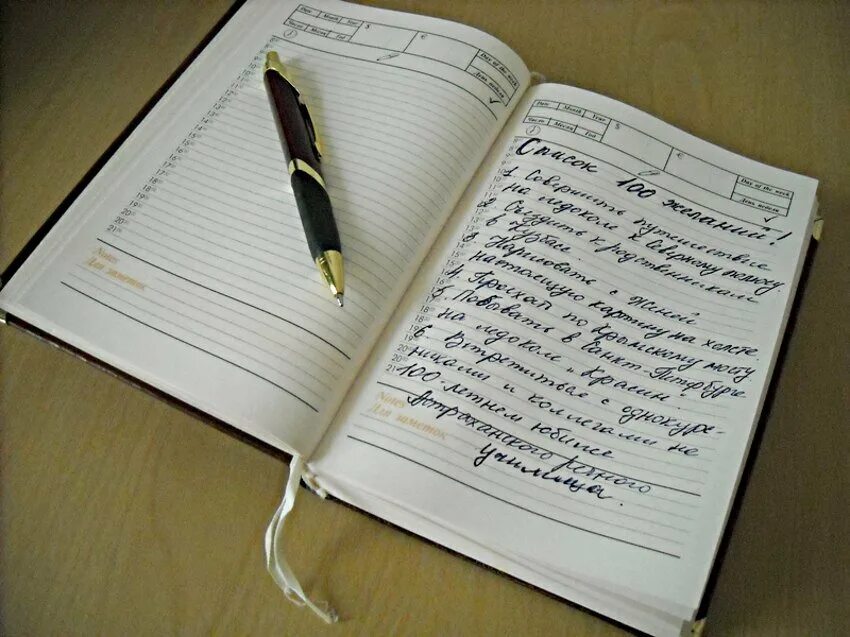 Date Month Year $ €
Число Месяц Год
Day of the week
День недели
9
10
11
12
13
14
15
16
17
18
19
20
21
Notes
Для заметок
Date Month Year $ €
Число Месяц Год
Day of the week
День недели
Список 100 желаний!
1. Совершить путешествие
на ледоколе к Северному полюсу.
2. Съездить к родственникам
в Кузбасс.
3. Нарисовать с Женей
настоящую картину на холсте.
4. Проехать по Крымскому мосту
5. Побывать в Санкт-Петербурге
на ледоколе "Красин".
6. Встретиться с однокурс-
никами и коллегами на
100-летнем юбилее
Астраханского речного
училища.
Notes
Для заметок